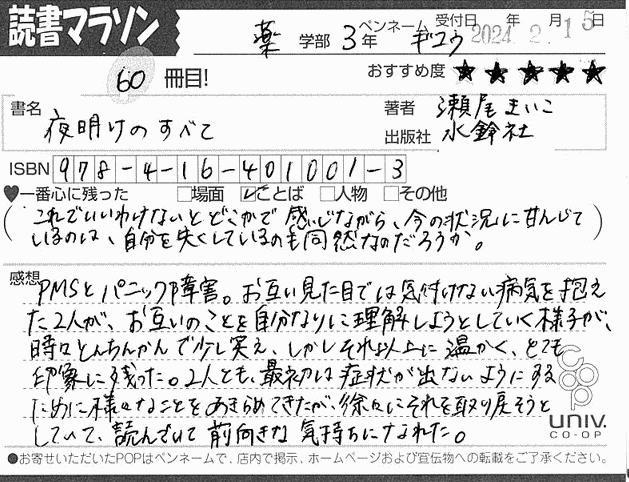 読書マラソン
薬 学部 3年 ペンネーム ギユウ 受付日 2024年 2月 15日
60 冊目!
おすすめ度 ★★★★★
書名 夜明けのすべて
著者 瀬尾まいこ
出版社 水鈴社
ISBN 978-4-16-401001-3
♥一番心に残った □場面 ☑ことば □人物 □その他
(これでいいわけないとどこかで感じながら、今の状況に甘んじて
いるのは、自分を失くしているのも同然なのだろうか。)
感想
PMSとパニック障害。お互い見た目では気付けない病気を抱え
た2人が、お互いのことを自分なりに理解しようとしていく様子が、
時々とんちんかんで少し笑え、しかしそれ以上に温かく、とても
印象に残った。2人とも、最初は症状が出ないようにする
ために様々なことをあきらめてきたが、徐々にそれを取り戻そうと
していて、読んでいて前向きな気持ちになれた。
coop
UNIV.
CO-OP
●お寄せいただいたPOPはペンネームで、店内で掲示、ホームページおよび宣伝物への転載をご了承ください。